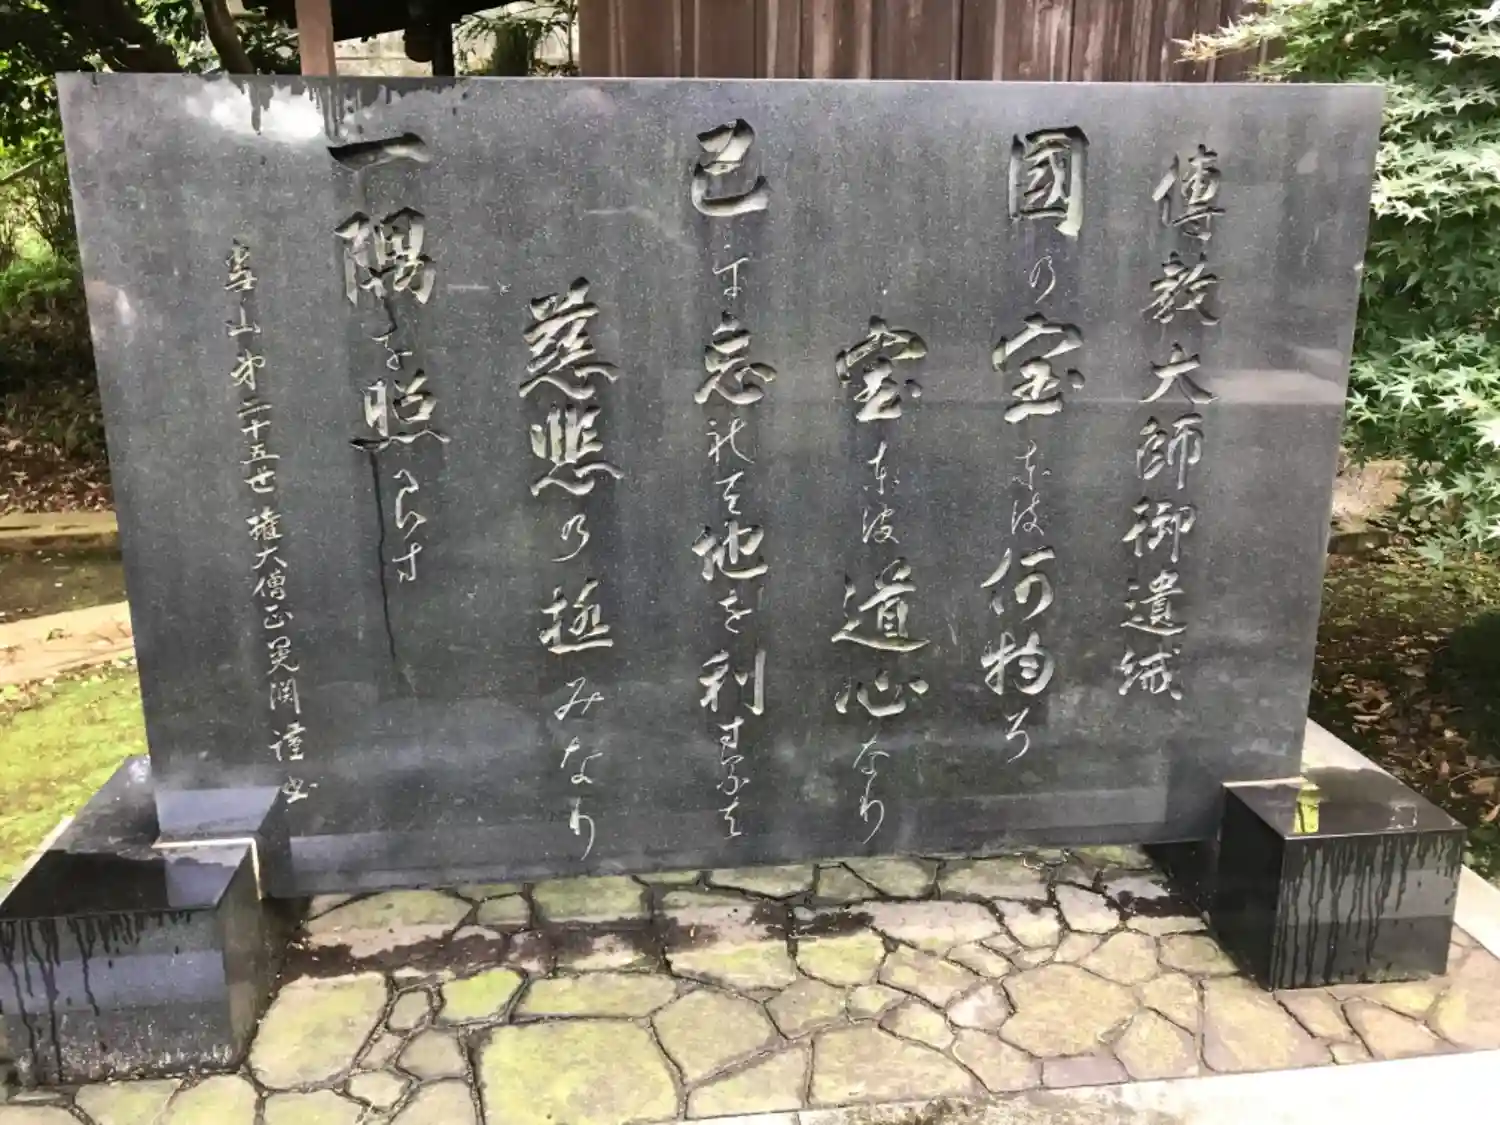 傳教大師御遺誡
國の宝とは何物そ
宝とは道心なり
己を忘れて他を利するは
慈悲の極みなり
一隅を照らす
山第二十五世権大僧正謹書